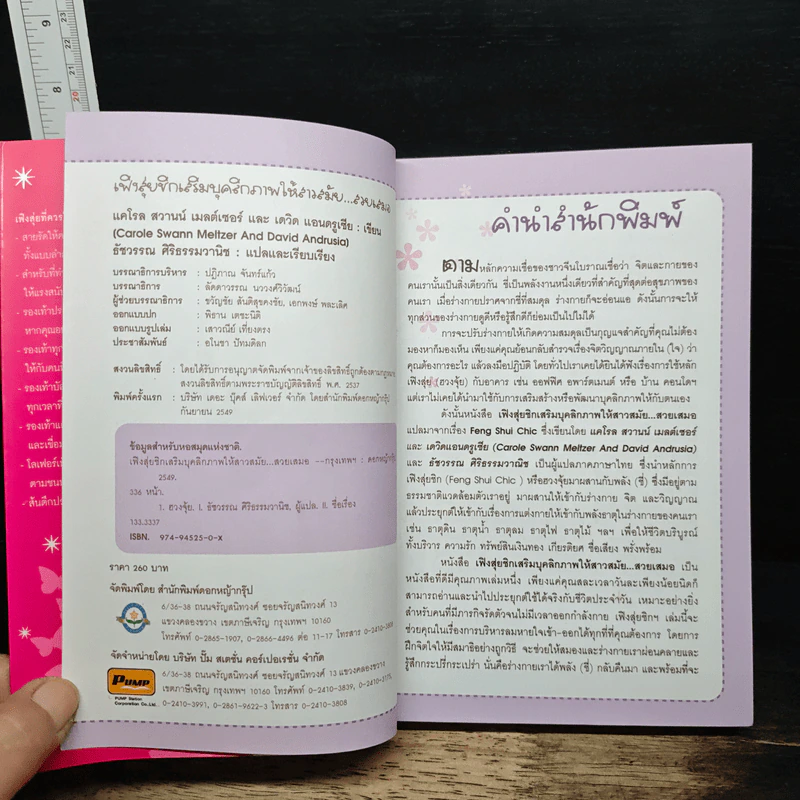 9
8
23
22
21
20
เฟิงสุ่ยที่ควร
- สายรัดให้ก
ทั้งแบบลำ
- สำหรับที่ท่
ให้แรงสนับ
- รองเท้าประ
หากคุณอย
- รองเท้าทุก
ให้กับคนที่
- รองเท้าบั
ทุกเวลาที่
- รองเท้าแ
และเชื่อม
- โลเฟอร์เ
ตามชนบ
- ส้นตึกปร
เฟิงสุ่ยชิกเสริมบุคลิกภาพให้สาวสมัย...สวยเสมอ
แคโรล สวานน์ เมลต์เซอร์ และ เดวิด แอนดรูเซีย : เขียน
(Carole Swann Meltzer And David Andrusia)
ธัชวรรณ ศิริธรรมวานิช : แปลและเรียบเรียง
บรรณาธิการบริหาร : ปฏิภาณ จันทร์แก้ว
บรรณาธิการ : ลัดดาวรรณ นววงศ์วิวัฒน์
ผู้ช่วยบรรณาธิการ : ขวัญชัย สันติสุขคงชัย, เอกพงษ์ พละเลิศ
ออกแบบปก : พิธาน เตชะนิติ
ออกแบบรูปเล่ม : เสาวณีย์ เที่ยงตรง
ประชาสัมพันธ์ : อโนชา ปัทมดิลก
สงวนลิขสิทธิ์ : โดยได้รับการอนุญาตจัดพิมพ์จากเจ้าของลิขสิทธิ์ถูกต้องตามกฎหมาย
สงวนลิขสิทธิ์ตามพระราชบัญญัติลิขสิทธิ์ พ.ศ. 2537
พิมพ์ครั้งแรก : บริษัท เดอะ บุ๊คส์ เลิฟเวอร์ จำกัด โดยสำนักพิมพ์ดอกหญ้ากรุ๊ป
กันยายน 2549
ข้อมูลสำหรับหอสมุดแห่งชาติ.
เฟิงสุ่ยชิกเสริมบุคลิกภาพให้สาวสมัย...สวยเสมอ --กรุงเทพฯ : ดอกหญ้ากรุ๊ป
2549.
336 หน้า.
1. ฮวงจุ้ย. I. ธัชวรรณ ศิริธรรมวานิช, ผู้แปล. II. ชื่อเรื่อง
133.3337
ISBN. 974-94525-0-X
ราคา 260 บาท
จัดพิมพ์โดย สำนักพิมพ์ดอกหญ้ากรุ๊ป
6/36-38 ถนนจรัญสนิทวงศ์ ซอยจรัญสนิทวงศ์ 13
แขวงคลองขวาง เขตภาษีเจริญ กรุงเทพฯ 10160
โทรศัพท์ 0-2865-1907, 0-2866-4496 ต่อ 11-17 โทรสาร 0-2410-3808
จัดจำหน่ายโดย บริษัท ปั๊ม สเตชั่น คอร์เปอเรชั่น จำกัด
6/36-38 ถนนจรัญสนิทวงศ์ ซอยจรัญสนิทวงศ์ 13 แขวงคลองขวาง
เขตภาษีเจริญ กรุงเทพฯ 10160 โทรศัพท์ 0-2410-3839, 0-2410-3175,
0-2410-3991, 0-2861-9622-3 โทรสาร 0-2410-3808
PUMP
PUMP Station
Corporation Co.,Ltd.
คำนำสำนักพิมพ์
ตามหลักความเชื่อของชาวจีนโบราณเชื่อว่า จิตและกายของ
คนเรานั้นเป็นสิ่งเดียวกัน ชี่เป็นพลังงานหนึ่งเดียวที่สำคัญที่สุดต่อสุขภาพของ
คนเรา เมื่อร่างกายปราศจากชี่ที่สมดุล ร่างกายก็จะอ่อนแอ ดังนั้นการจะให้
ทุกส่วนของร่างกายดูดีหรือรู้สึกดีก็ย่อมเป็นไปไม่ได้
การจะปรับร่างกายให้เกิดความสมดุลเป็นกุญแจสำคัญที่คุณไม่ต้อง
มองหาก็มองเห็น เพียงแค่คุณย้อนกลับสำรวจเรื่องจิตวิญญาณภายใน (ใจ) ว่า
คุณต้องการอะไร แล้วลงมือปฏิบัติ โดยทั่วไปเราเคยได้ยินได้ฟังเรื่องการใช้หลัก
เฟิงสุ่ย (ฮวงจุ้ย) กับอาคาร เช่น ออฟฟิศ อพาร์ตเมนต์ หรือ บ้าน คอนโดฯ
แต่เราไม่เคยได้นำมาใช้กับการเสริมสร้างหรือพัฒนาบุคลิกภาพให้กับตนเอง
ดังนั้นหนังสือ เฟิงสุ่ยชิกเสริมบุคลิกภาพให้สาวสมัย...สวยเสมอ
แปลมาจากเรื่อง Feng Shui Chic ซึ่งเขียนโดย แคโรล สวานน์ เมลต์เซอร์
และ เดวิดแอนดรูเซีย (Carole Swann Meltzer And David Andrusia)
และ ธัชวรรณ ศิริธรรมวานิช เป็นผู้แปลภาคภาษาไทย ซึ่งนำหลักการ
เฟิงสุ่ยชิก (Feng Shui Chic ) หรือฮวงจุ้ยมาผสานกับพลัง (ชี่) ซึ่งมีอยู่ตาม
ธรรมชาติแวดล้อมตัวเราอยู่ มาผสานให้เข้ากับร่างกาย จิต และวิญญาณ
แล้วประยุกต์ให้เข้ากับเรื่องการแต่งกายให้เข้ากับพลังธาตุในร่างกายของคนเรา
เช่น ธาตุดิน ธาตุน้ำ ธาตุลม ธาตุไฟ ธาตุไม้ ฯลฯ เพื่อให้ชีวิตบริบูรณ์
ทั้งบริวาร ความรัก ทรัพย์สินเงินทอง เกียรติยศ ชื่อเสียง พรั่งพร้อม
หนังสือ เฟิงสุ่ยชิกเสริมบุคลิกภาพให้สาวสมัย...สวยเสมอ เป็น
หนังสือที่ดีมีคุณภาพเล่มหนึ่ง เพียงแค่คุณสละเวลาวันละเพียงน้อยนิดก็
สามารถอ่านและนำไปประยุกต์ใช้ได้จริงกับชีวิตประจำวัน เหมาะอย่างยิ่ง
สำหรับคนที่มีภารกิจรัดตัวจนไม่มีเวลาออกกำลังกาย เฟิงสุ่ยชิกฯ เล่มนี้จะ
ช่วยคุณในเรื่องการบริหารลมหายใจเข้า-ออกได้ทุกที่ที่คุณต้องการ โดยการ
ฝึกจิตใจให้มีสมาธิอย่างถูกวิธี จะช่วยให้สมองและร่างกายเราผ่อนคลายและ
รู้สึกกระปรี้กระเปร่า นั่นคือร่างกายเราได้พลัง (ชี่) กลับคืนมา และพร้อมที่จะ